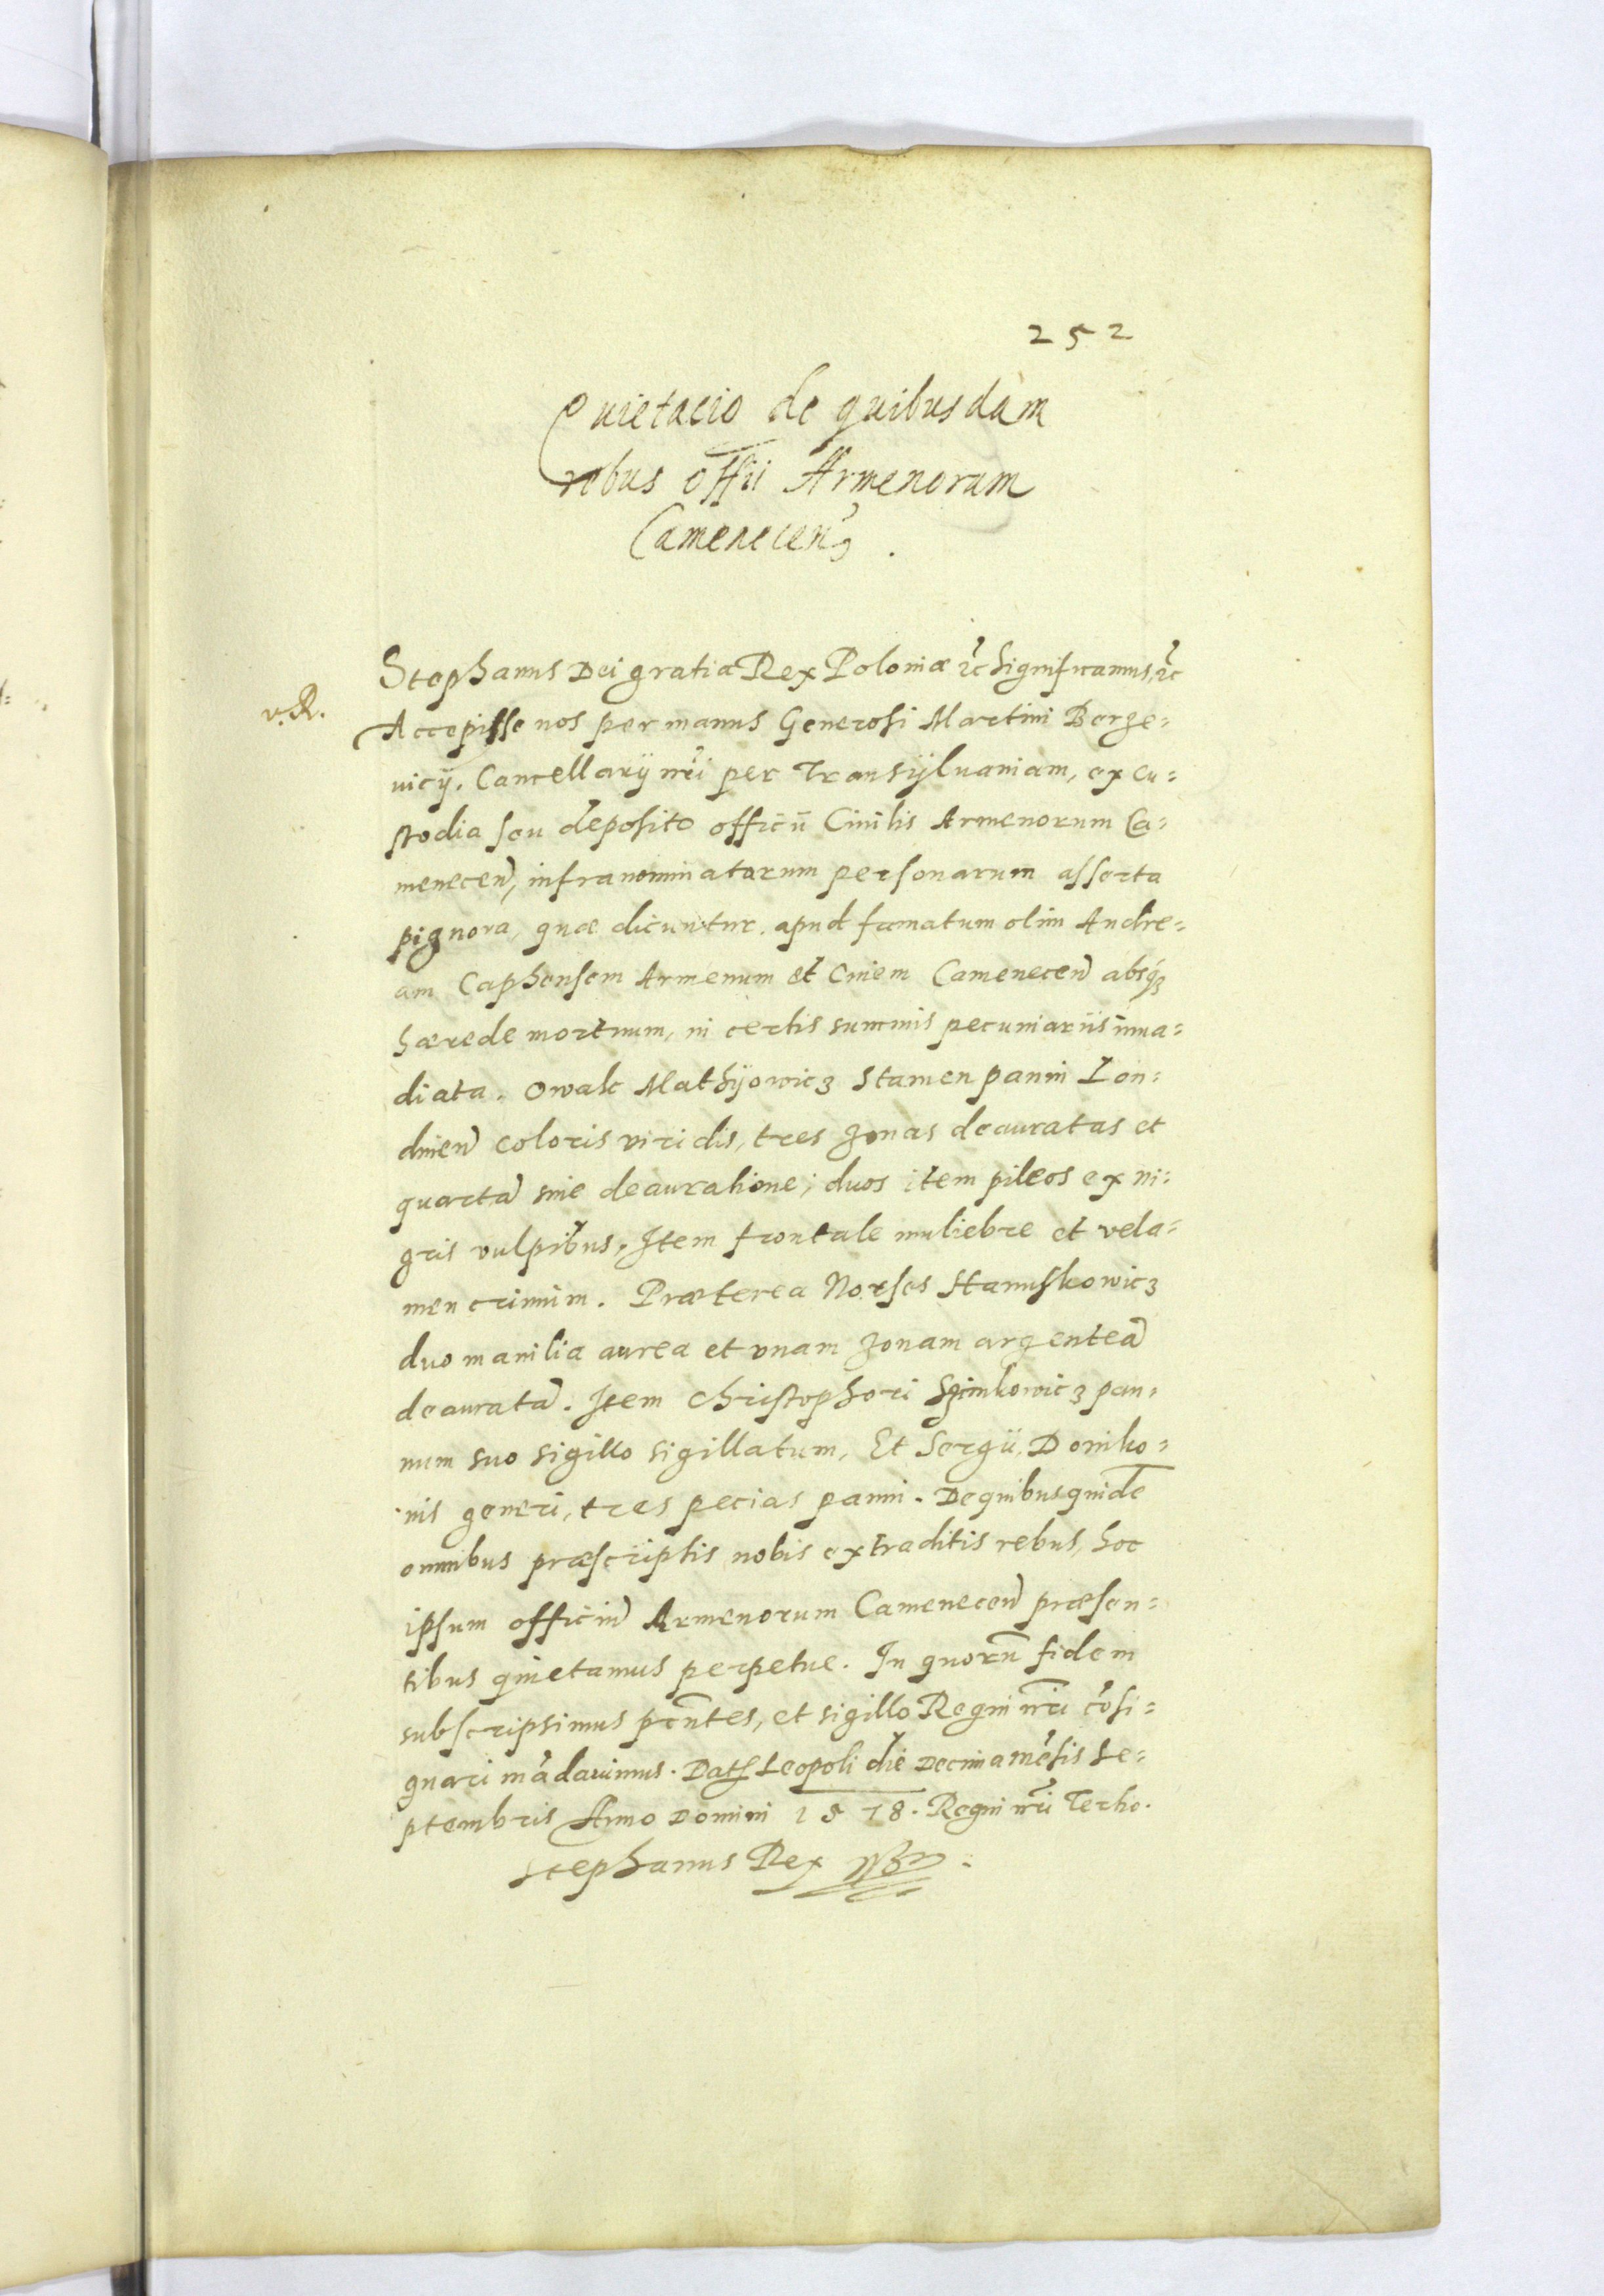 252
Quietacio de quibusdam
rebus offii Armenorum
Camenecen̄
Stephanus Dei gratia Rex Poloniæ etc̄ Significamus, etc̄
v. R.
Accepisse nos per manus Generosi Martini Berze-
uicij, Cancellarij nr̄i per Transijluaniam, ex cu-
stodia seu deposito officii Ciuilis Armenorum Ca-
menecen̄, infranominatarum personarum asserta
pignora, quæ dicuntur apud famatum olim Andre-
am Caphensem Armenum et Ciuem Camenecen̄ absq3
hærede mortuum, in certis summis pecuniariis inua-
diata. Owak Mathijowicz Stamen panni Lon-
dinen̄ coloris viridis, tres zonas deauratas et
quartā sine deauratione; duos item pileos ex ni-
gris vulpibus, Item frontale muliebre et vela-
men crinium. Præterea Norses Hanuskowicz
duo manilia aurea et vnam zonam argenteā
deauratā. Item Christophori Szimkowicz pan-
num suo sigillo sigillatum, Et Sergii Doniko-
nis generi, tres pecias panni. De quibus quidē
omnibus præscriptis nobis extraditis rebus, hoc
ipsum officiū Armenorum Camenecen̄ præsen-
tibus quietamus perpetue. In quorū fidem
subscripsimus pr̄ntes, et sigillo Regni nr̄i cōsi-
gnari mādauimus. Dat. Leopoli die Decima mēsis Se-
ptembris Anno Domini 1578. Regni nr̄i Tertio.
Stephanus Rex